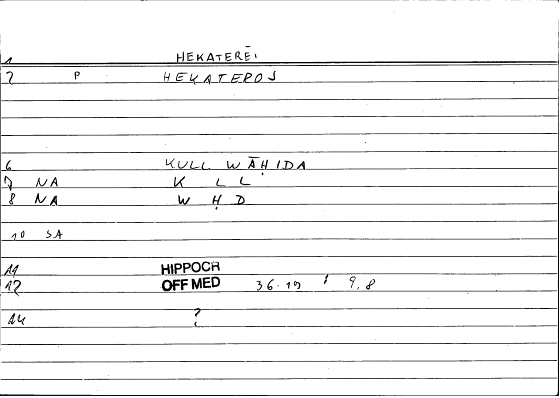 1 HEKATERĒI
2 P HEKATEROS
6 KULL WĀḤIDA
7 NA K L L
8 NA W Ḥ D
10 SA
11 HIPPOCR
12 OFF MED 9,8
14 ?